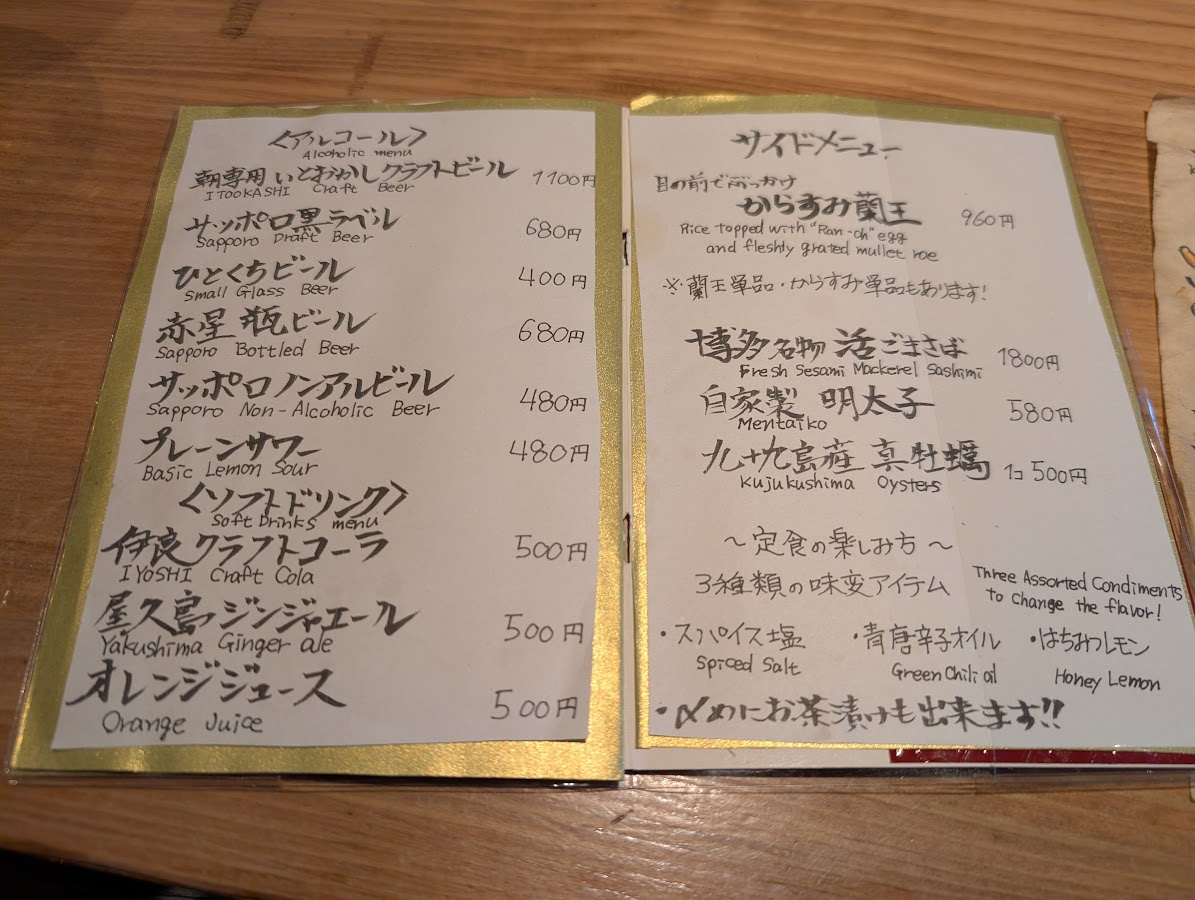 〈アルコール〉
Alcoholic menu
朝専用いとおかしクラフトビール 1100円
ITOOKASHI Craft Beer
サッポロ黒ラベル 680円
Sapporo Draft Beer
ひとくちビール 400円
Small Glass Beer
赤星 瓶ビール 680円
Sapporo Bottled Beer
サッポロノンアルビール 480円
Sapporo Non-Alcoholic Beer
プレーンサワー 480円
Basic Lemon Sour
〈ソフトドリンク〉
Soft Drinks menu
伊良クラフトコーラ 500円
IYOSHI Craft Cola
屋久島ジンジャエール 500円
Yakushima Ginger ale
オレンジジュース 500円
Orange Juice
サイドメニュー
目の前でぶっかけ
からすみ蘭王 960円
Rice topped with "Ran-oh" egg
and fleshly grated mullet roe
※蘭王単品・からすみ単品もあります!
博多名物 活ごまさば 1800円
Fresh Sesami Mackerel Sashimi
自家製 明太子 580円
Mentaiko
九十九島産 真牡蠣 1コ 500円
Kujukushima Oysters
〜定食の楽しみ方〜
3種類の味変アイテム
Three Assorted Condiments
to change the flavor!
・スパイス塩 ・青唐辛子オイル ・はちみつレモン
Spiced Salt Green Chili oil Honey Lemon
・〆めにお茶漬けも出来ます!!